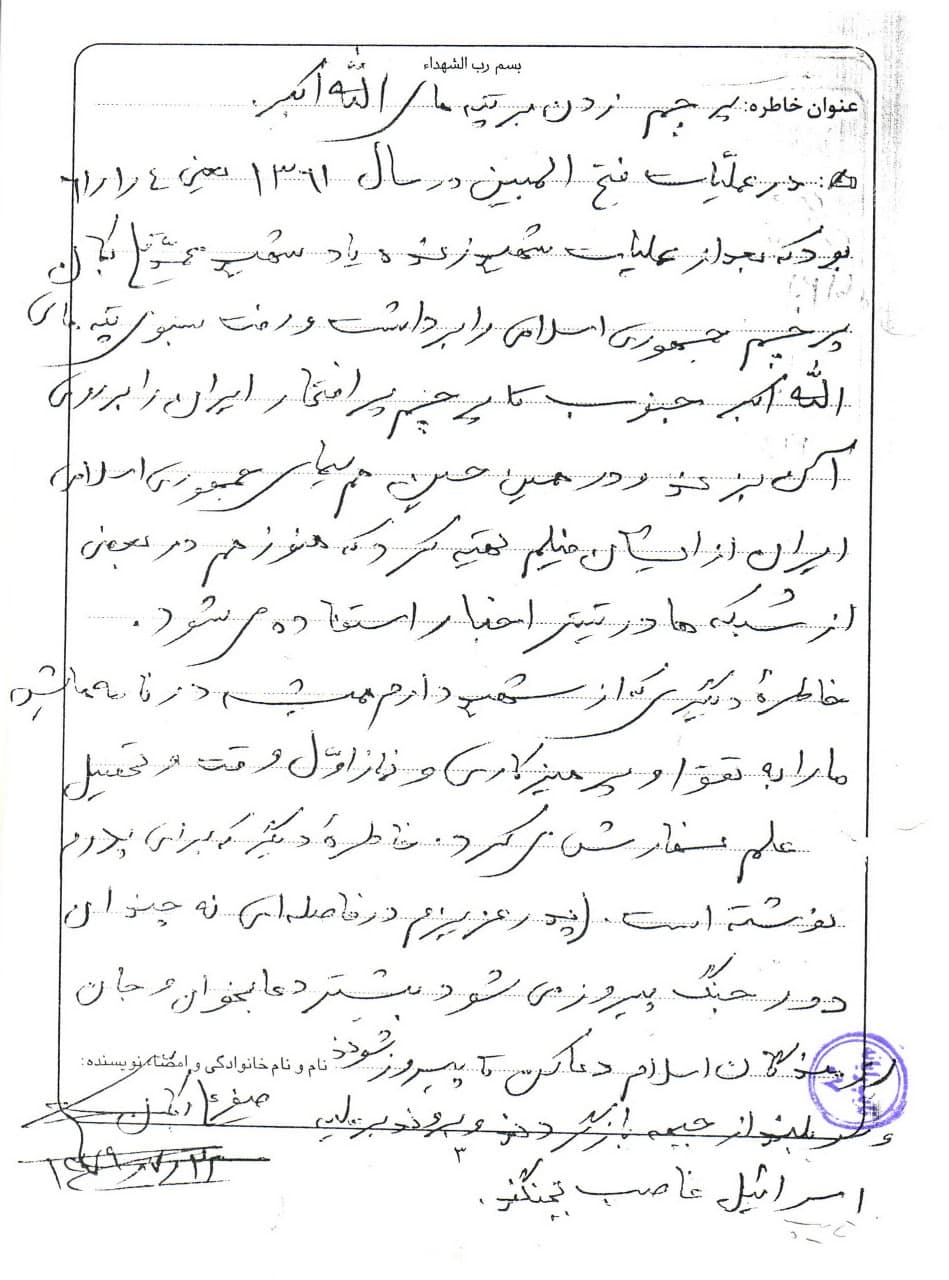 بسم رب الشهداء
عنوان خاطره: پرچم زدن بر تپه های الله اکبر.
در عملیّات فتح المبین در سال ۱۳۶۱ یعنی ۴ ر۱ ر۶۱
بود که بعد از عملیات شهید زنده یاد شهید
پرچم جمهوری اسلامی را برداشت و رفت بسوی تپه های
الله اکبر جنوب تا پرچم پر افتخار ایران را بر روی
آن بزند و در همین حین هم سیمای جمهوری اسلامی
ایران از ایشان فیلم تهیه کرد که هنوز هم در بعضی
از شبکه ها در تیتر اخبار استفاده می شود.
خاطرهٔ دیگری که از شهید دارم همیشه در نامه هایش
ما را به تقوا و پرهیزکاری و نماز اوّل وقت و تحصیل
علم سفارش می کرد. خاطرهٔ دیگر که برای پدرم
نوشته است. (پدر عزیزم در فاصله ای نه چندان
دور جنگ پیروز می شود بیشتر دعا بخوان و جان
رزمندگان اسلام دعا کن تا پیروز شوند
نام و نام خانوادگی و امضاء نویسنده:
از جبهه باز گردند و بروند بر علیه
۳
اسرائیل غاصب بجنگند.